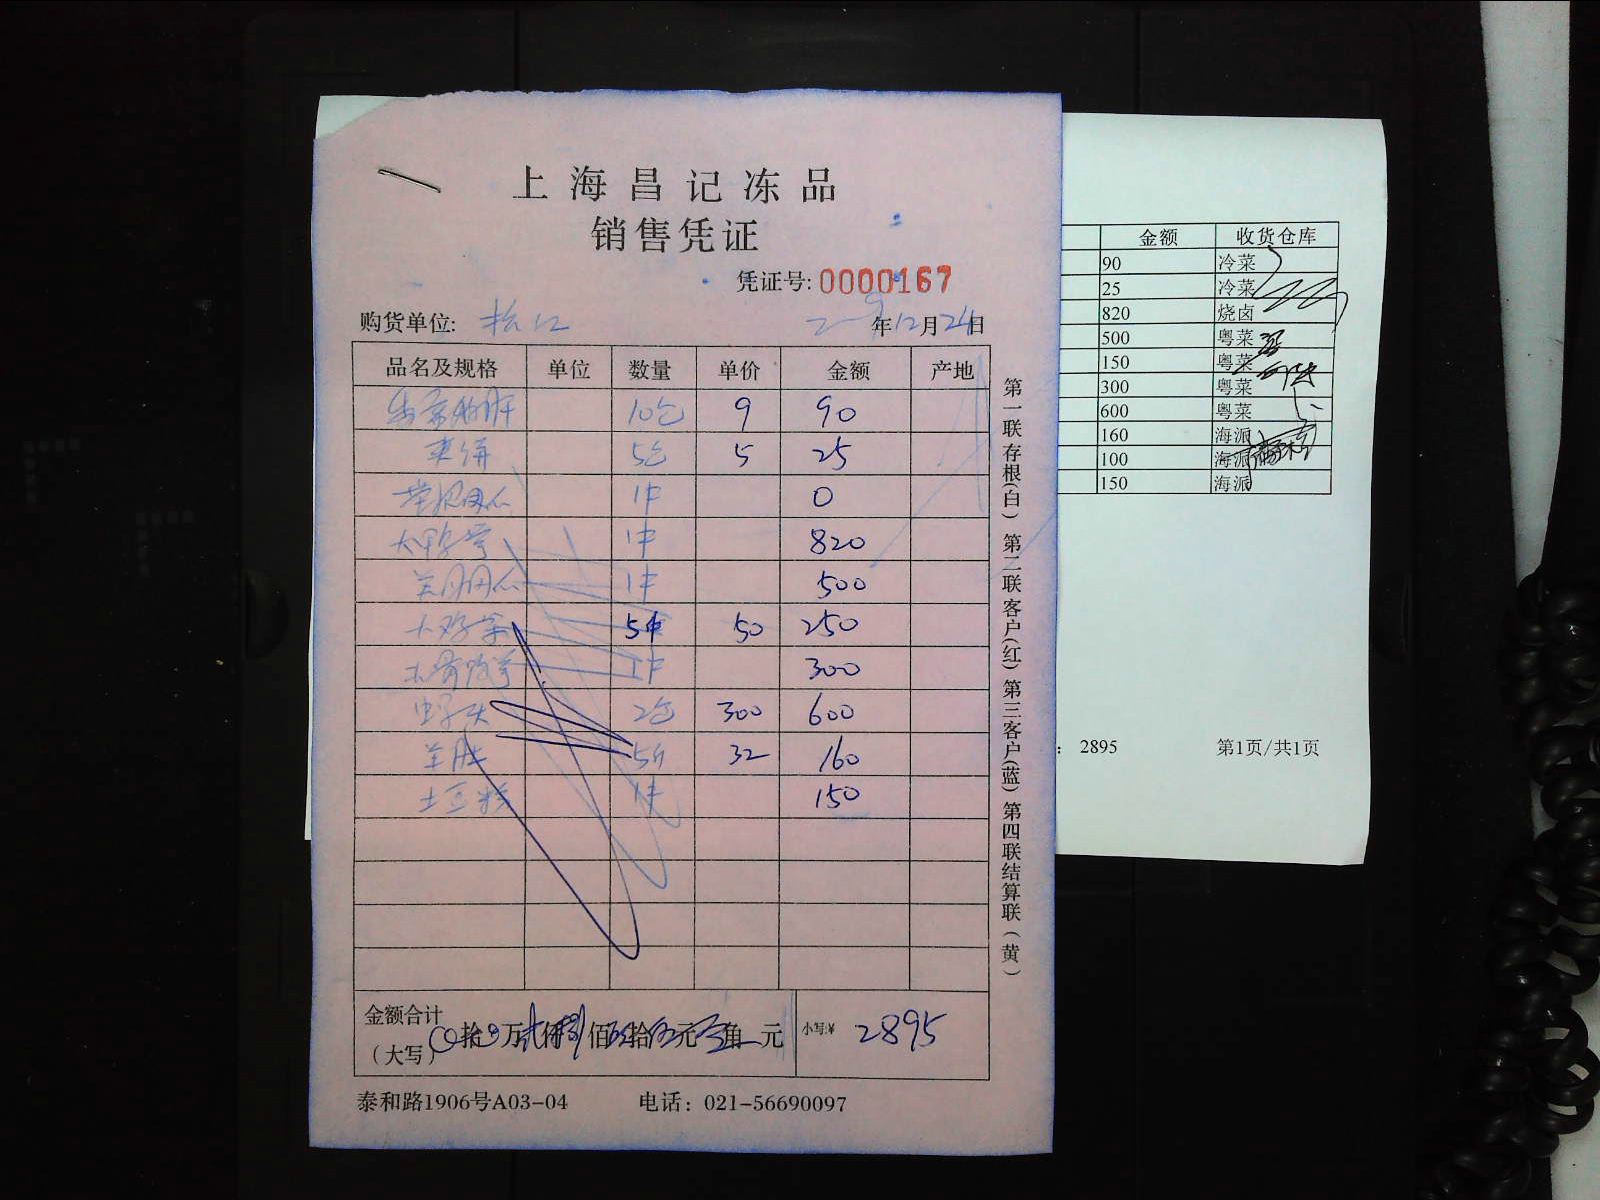 上海昌记冻品
销售凭证
凭证号: 0000167
购货单位: 松江 年12月24日
品名及规格 单位 数量 单价 金额 产地
10包 9 90
夹饼 5包 5 25
1件 0
1件 820
1件 500
5件 50 250
1件 300
2包 300 600
羊肚 5斤 32 160
土豆粉 1件 150
金额合计
(大写) 拾 万 仟 佰 拾 元 角 元 小写:¥ 2895
泰和路1906号A03-04 电话: 021-56690097
第一联存根(白) 第二联客户(红) 第三客户(蓝) 第四联结算联(黄)
金额 收货仓库
90 冷菜
25 冷菜
820 烧卤
500 粤菜
150 粤菜
300 粤菜
600 粤菜
160 海派
100 海派
150 海派
: 2895 第1页/共1页